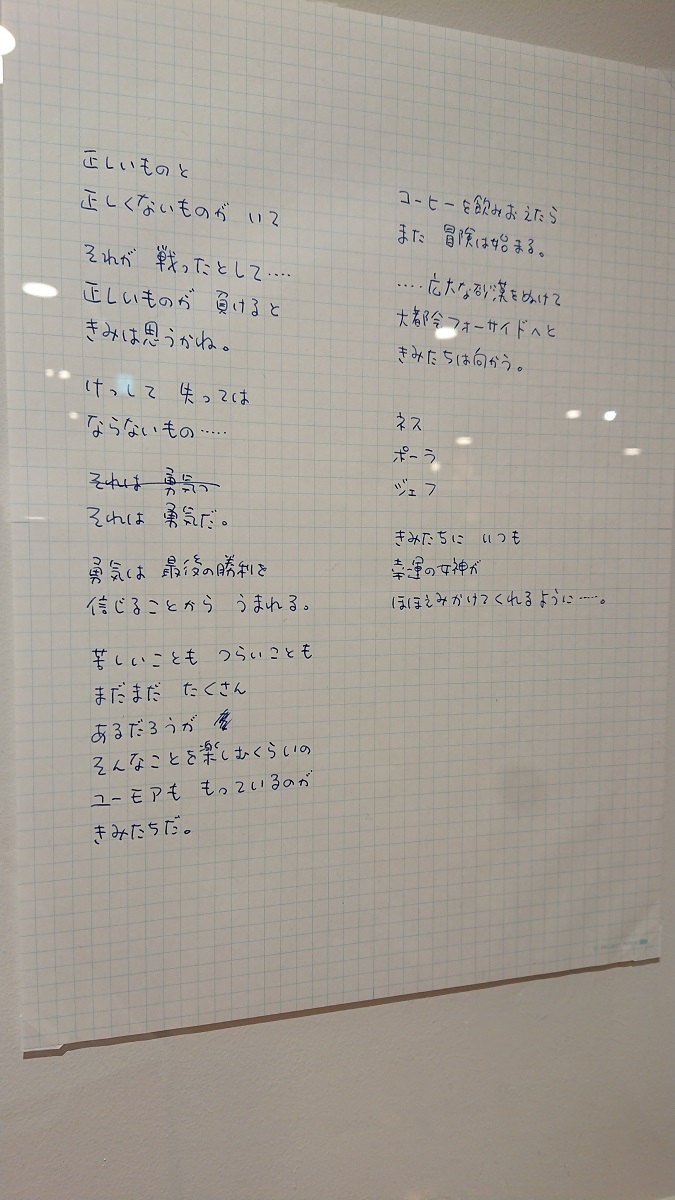 正しいものと
正しくないものが いて
それが 戦ったとして‥‥
正しいものが 負けると
きみは思うかね。
けっして 失っては
ならないもの‥‥‥
それは 勇気っ
それは 勇気だ。
勇気は 最後の勝利を
信じることから うまれる。
苦しいことも つらいことも
まだまだ たくさん
あるだろうが
そんなことを楽しむくらいの
ユーモアも もっているのが
きみたちだ。
コーヒーを飲みおえたら
また 冒険は始まる。
‥‥‥広大な砂漠をぬけて
大都会フォーサイドへと
きみたちは向かう。
ネス
ポーラ
ジェフ
きみたちに いつも
幸運の女神が
ほほえみかけてくれるように‥‥。